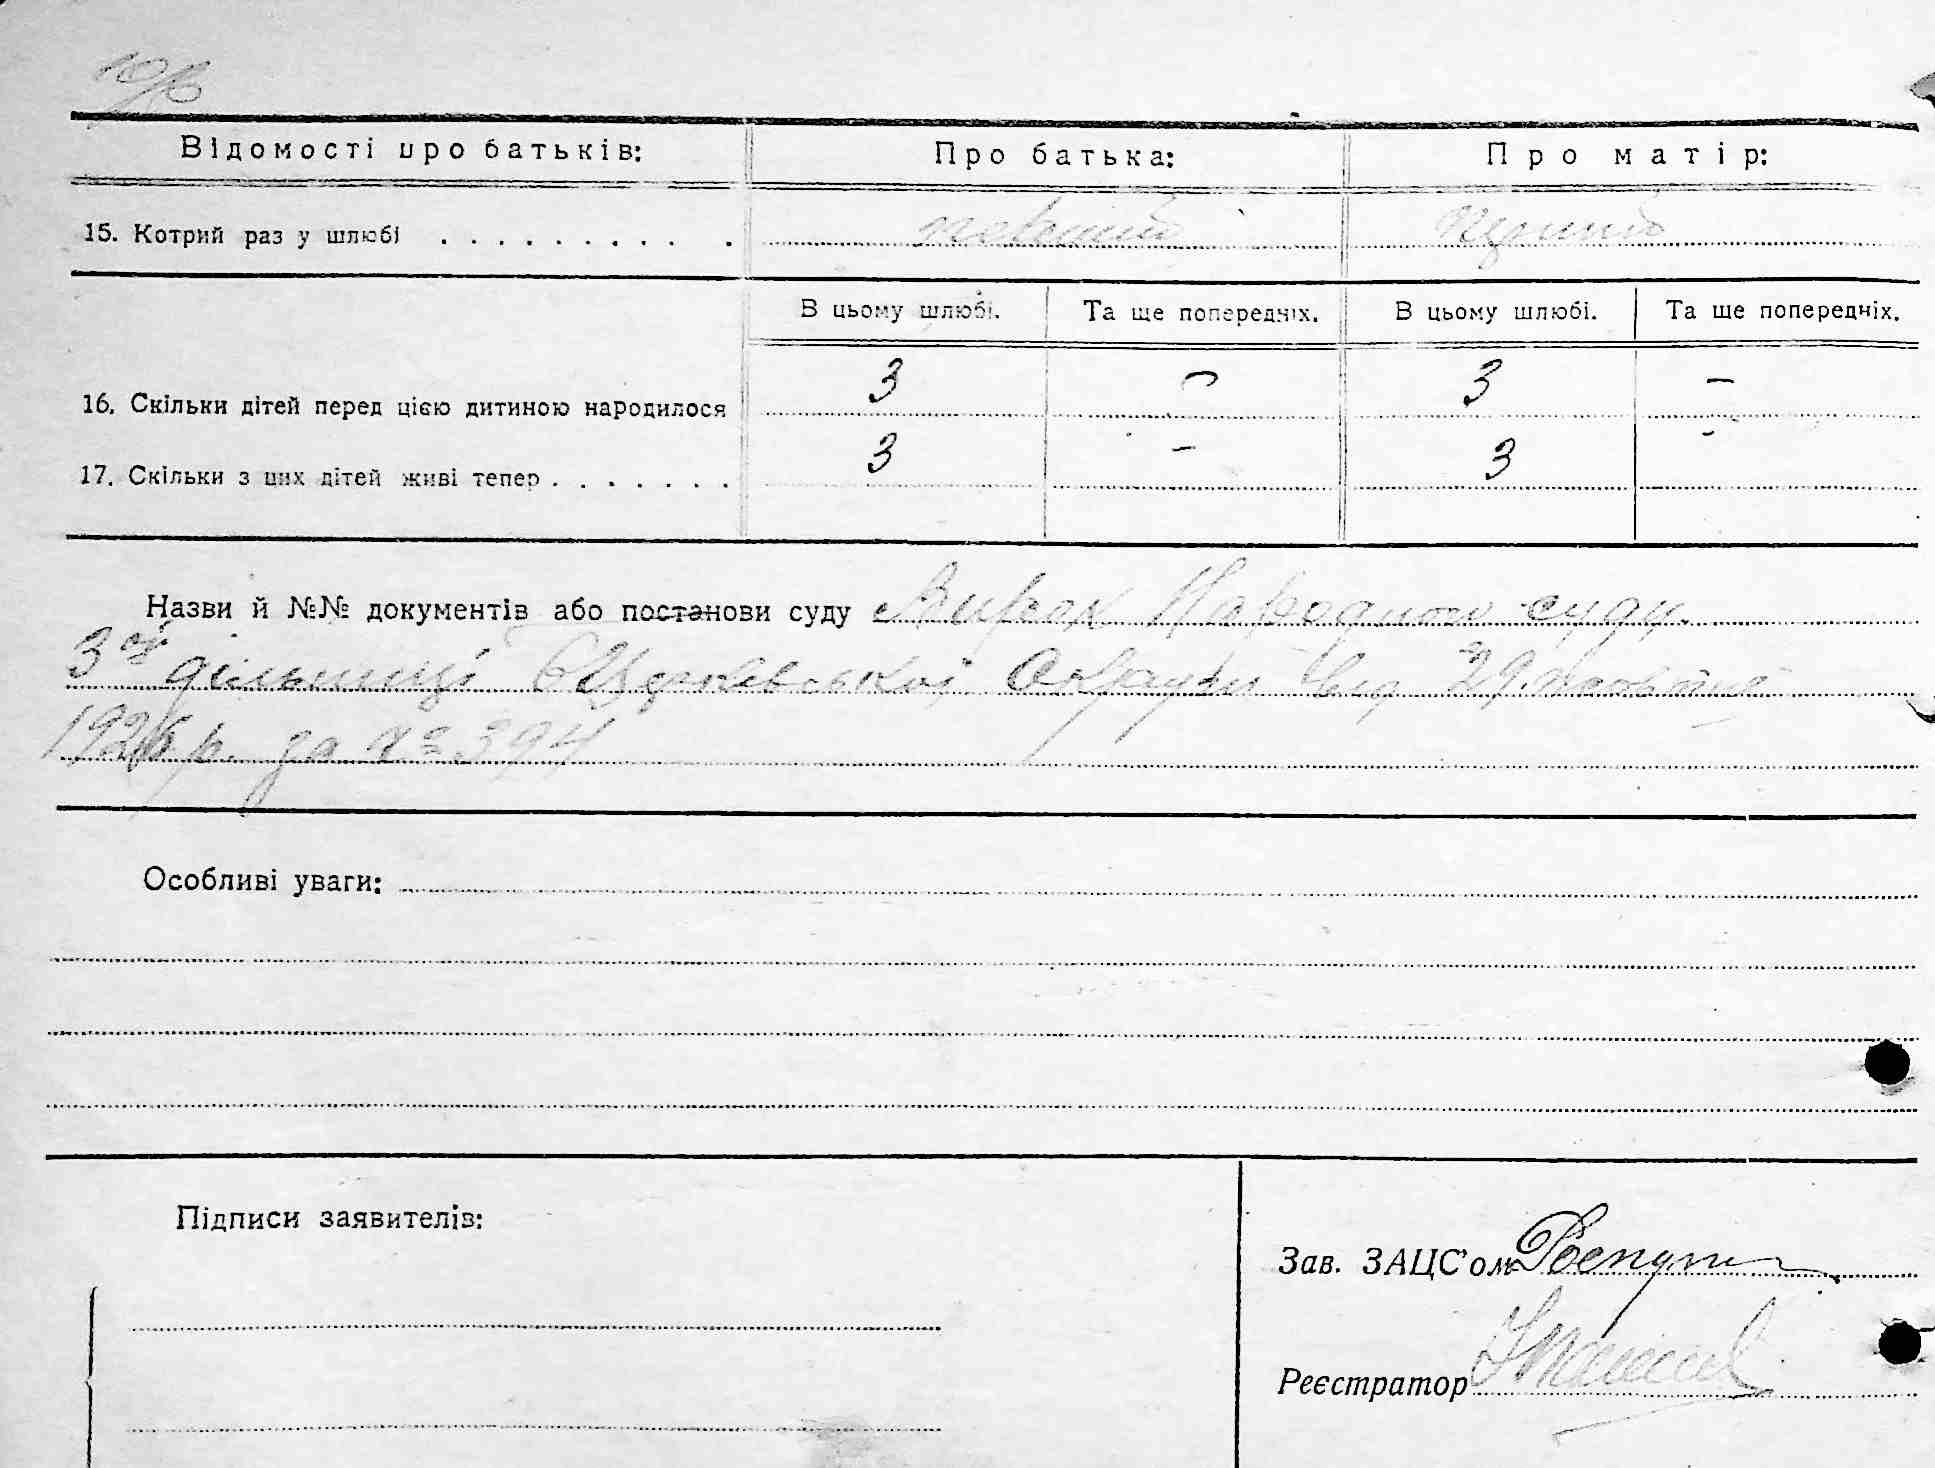 Відомості про батьків: Про батька: Про матір:
15. Котрий раз у шлюбі . . . . . . . . . . перший перший
В цьому шлюбі. Та ще попередніх. В цьому шлюбі. Та ще попередніх.
16. Скільки дітей перед цією дитиною народилося 3 – 3 –
17. Скільки з цих дітей живі тепер . . . . . . . 3 – 3 -
Назви й №№ документів або постанови суду Вирок Народного суду
3ої дільниці БЦерківської Округи від 29. жовтня
1926 р. за № 394
Особливі уваги:
Підписи заявителів:
Зав. ЗАЦС'ом
Реєстратор